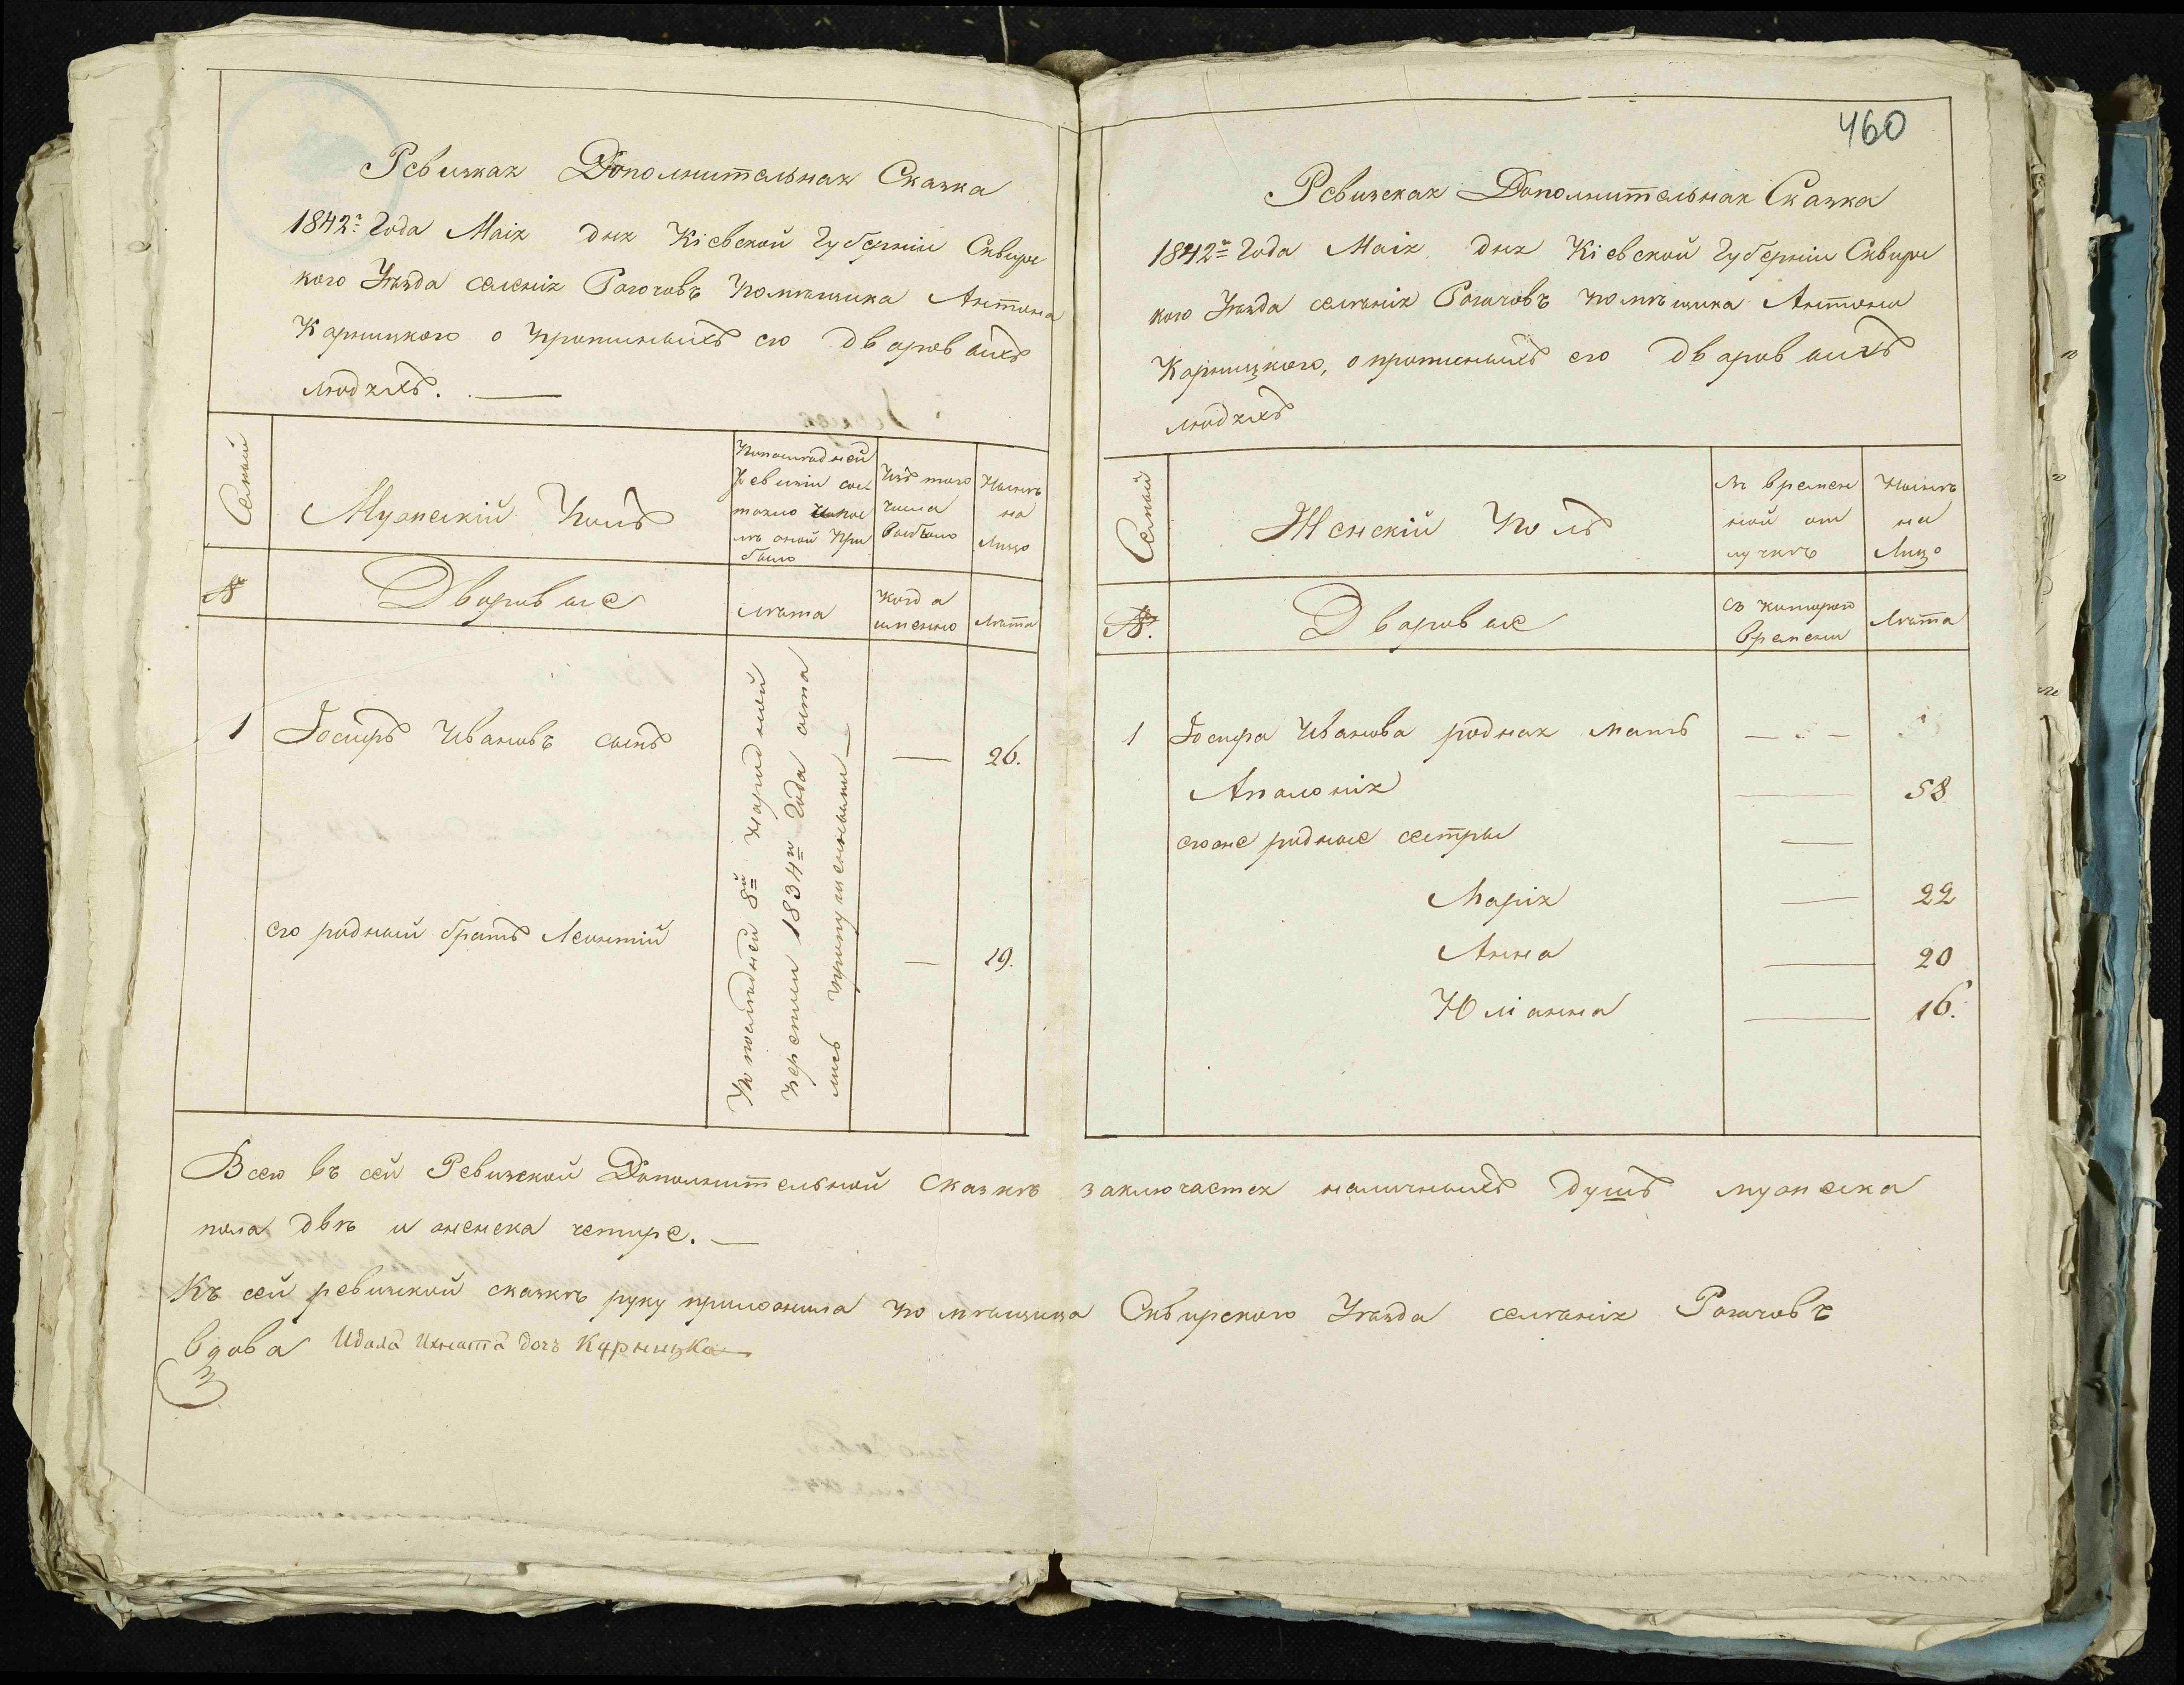 Ревизкая Дополнительная Сказка
1842го Года Маія дня Кіевской Губерніи Сквирс
кого Уѣзда селенія Рогачовъ Помѣщика Антона
Карницкого о прописныхъ его Дворовыхъ
людяхъ.
Семьи
Мужескій Полъ
Попослѣдней
Ревизіи сос
тояло
лѣ оной При
было
Изъ того
числа
выбыло
Нынѣ
на
Лицо
№
Дворовые
лѣта
когда
именно
лѣта
1 Іосифъ Ивановъ сынъ — 26.
его родный братъ Леонтій — 19.
По послѣдней 8й Народной
Переписи 1834го Года оста
лись пропущенными —
460
Ревизская Дополнительная Сказка
1842го Года Маія дня Кіевской Губерніи Сквирс
кого Уѣзда селѣнія Рогачовъ помѣщика Антона
Карницкого, о прописныхъ его Дворовыхъ
людяхъ
Семьи
Женскій Полъ
въ времен
ной от
лучкѣ
Нынѣ
на
Лицо
№.
Дворовые
съ которого
времени
лѣта
1 Іосифа Иванова родная мать — —
Аполонія — 58
егоже родные сестры —
Марія — 22
Анна — 20
Юліанна — 16.
Всего въ сей Ревизской Дополнительной сказкѣ заключается наличныхъ душъ мужеска
пола двѣ и женска четире. —
Къ сей ревизской сказкѣ руку приложила помѣщица Сквирского Уѣзда селѣнія Рогачовъ
вдова дочъ Карницка